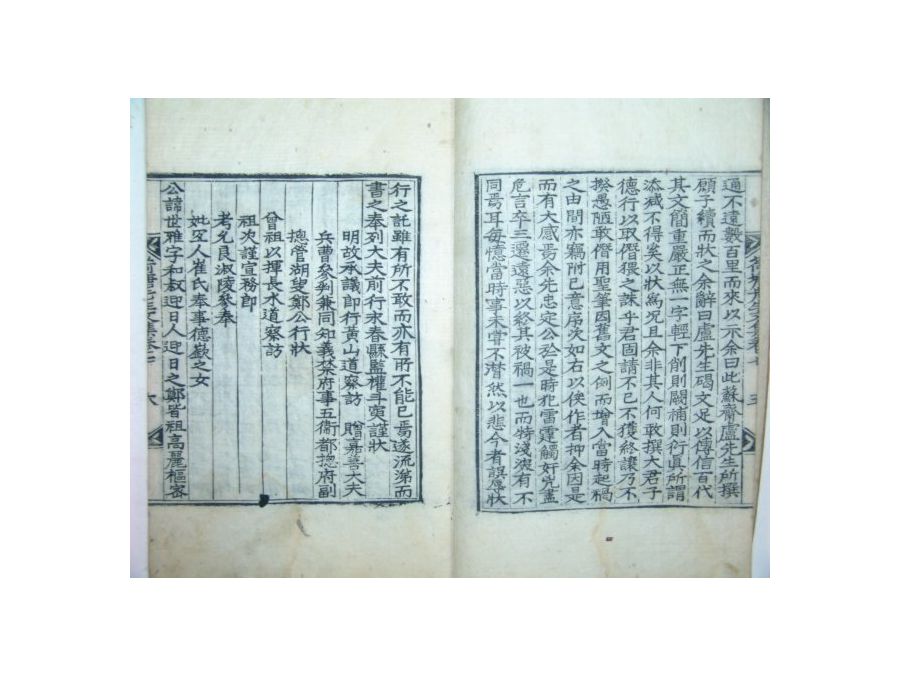 通不遠數百里而來以示余曰此蘇齋盧先生所撰
顧子續而狀之余辭曰盧先生碣文足以傳信百代
其文簡重嚴正無一字輕下削則闕補則衍眞所謂
添減不得矣以狀爲况且余非其人何敢撰大君子
德行以取僭猥之誅乎君固請不已不獲終讓乃不
揆愚陋敢僭用聖筆因舊文之例而增入當時起禍
之由間亦竊附己意序次如右以俟作者抑余因是
而有大感焉余先忠定公於是時犯雷霆觸奸兇盡
危言卒三遷遠惡以終其被禍一也而特淺與有不
同焉耳每憶當時事未嘗不潸然以悲今者誤辱狀
行之託雖有所不敢而亦有所不能已焉遂流涕而
書之奉列大夫前行永春縣監權斗寅謹狀
明故承議郎行黃山道察訪 贈嘉善大夫
兵曹參判兼同知義禁府事五衛都摠府副
摠管湖叟鄭公行狀
曾祖以揮長水道察訪
祖次謹宣務郎
考允良淑陵參奉
妣空人崔氏奉事德嶔之女
公諱世雅字和叔迎日人迎日之鄭皆祖高麗樞密